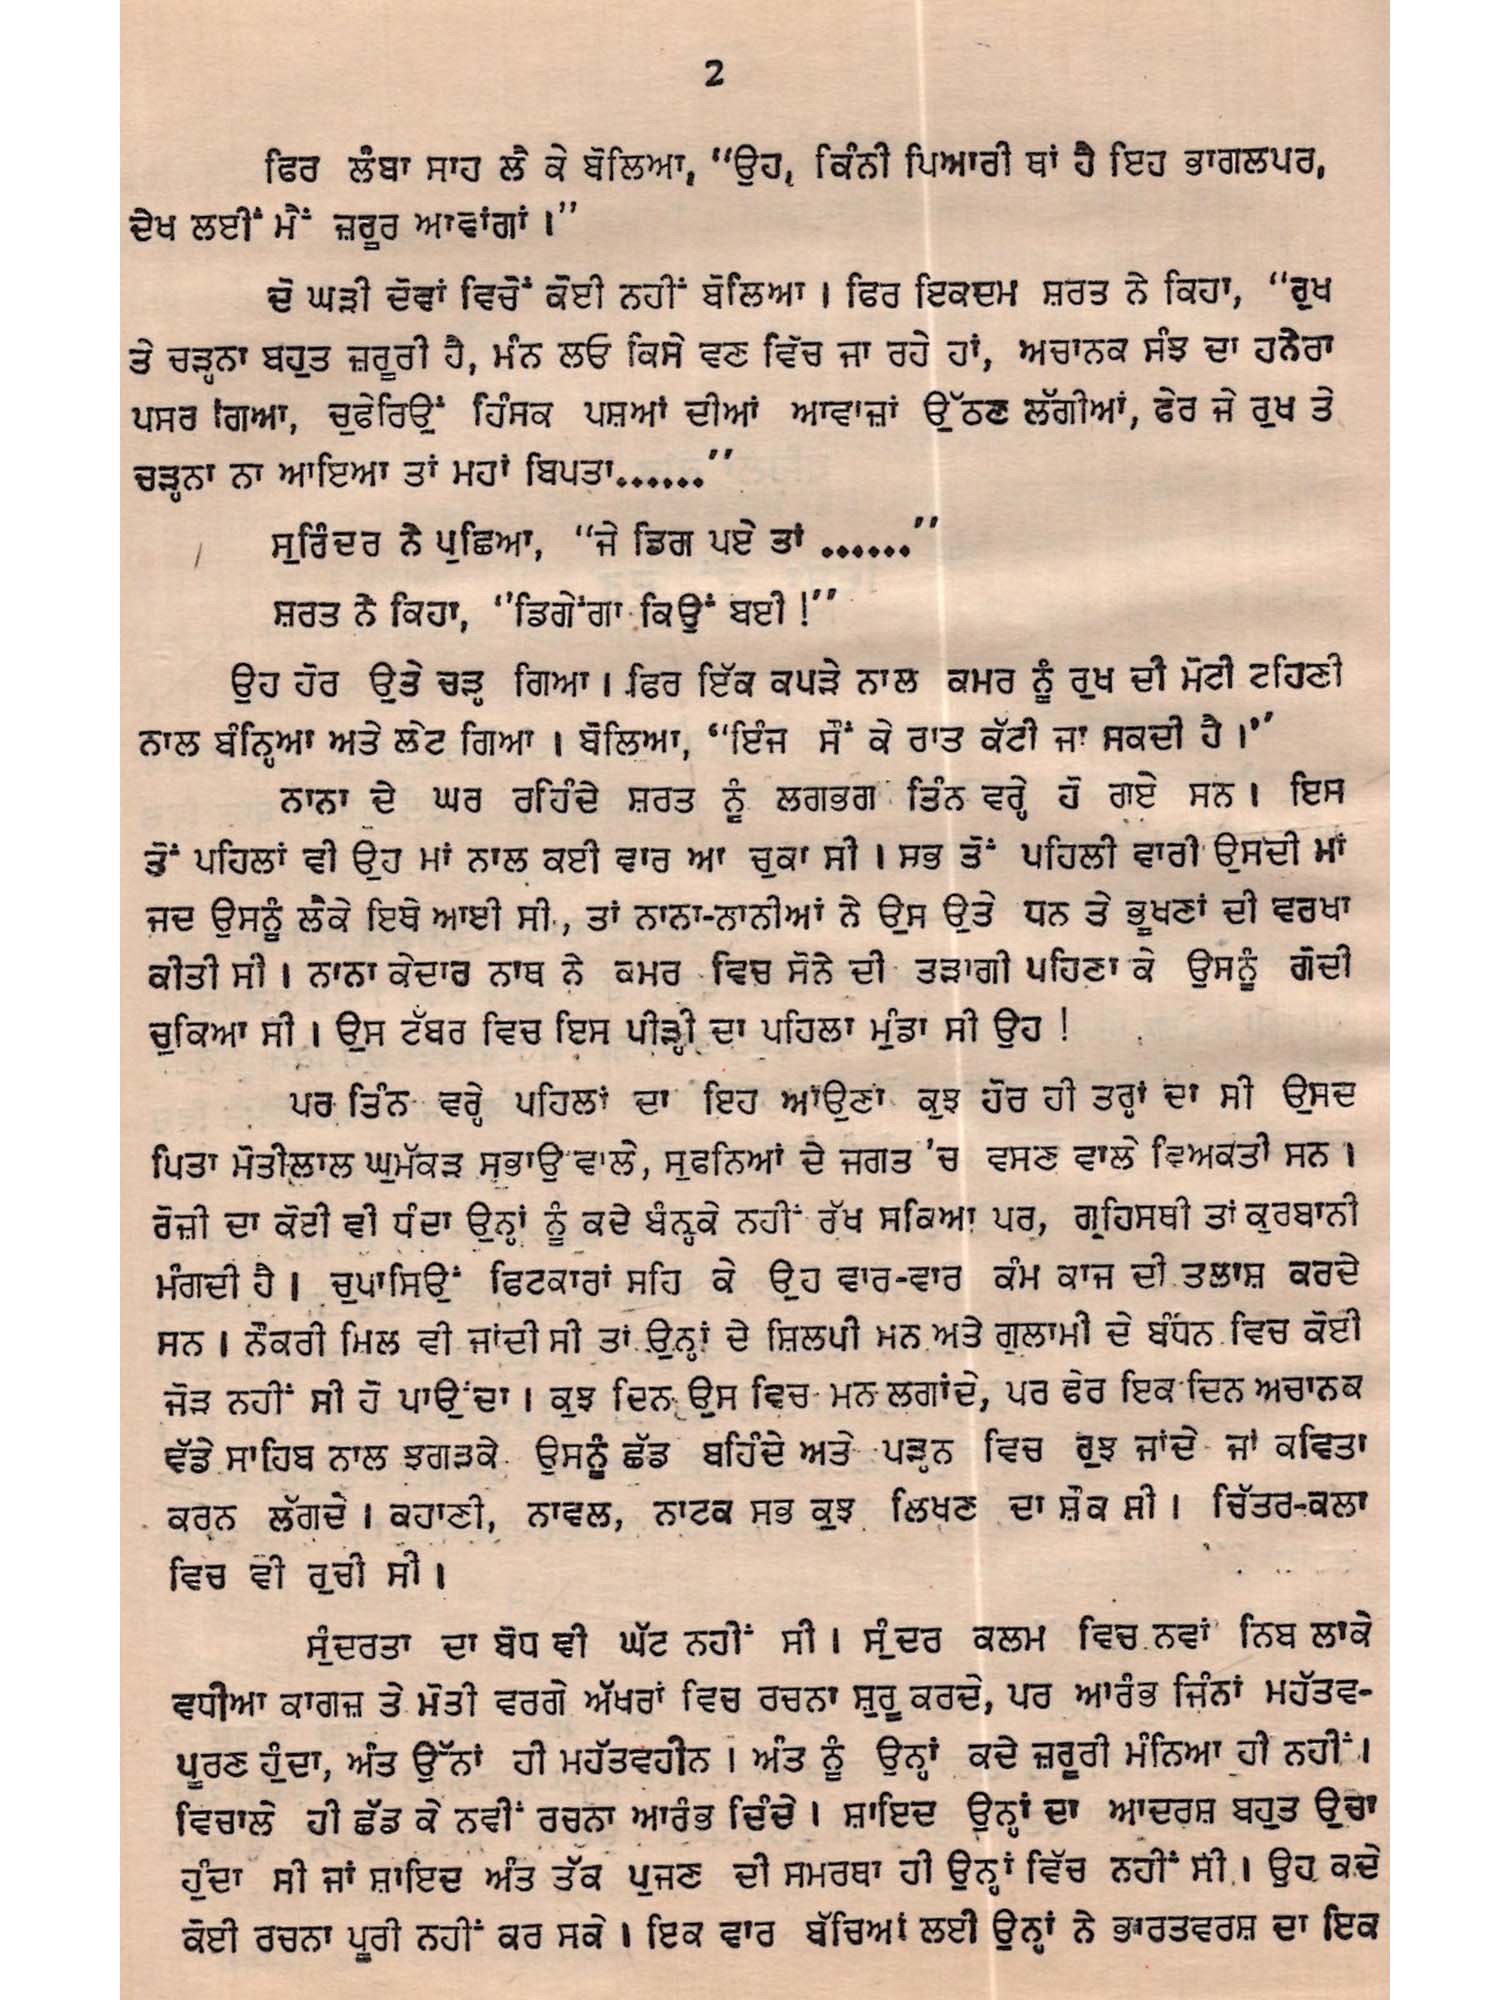 2
ਫਿਰ ਲੰਬਾ ਸਾਹ ਲੈ ਕੇ ਬੋਲਿਆ, “ਉਹ, ਕਿੰਨੀ ਪਿਆਰੀ ਥਾਂ ਹੈ ਇਹ ਭਾਗਲਪਰ,
ਦੇਖ ਲਈਂ ਮੈਂ ਜ਼ਰੂਰ ਆਵਾਂਗਾਂ।”
ਦੋ ਘੜੀ ਦੋਵਾਂ ਵਿਚੋਂ ਕੋਈ ਨਹੀਂ ਬੋਲਿਆ। ਫਿਰ ਇਕਦਮ ਸ਼ਰਤ ਨੇ ਕਿਹਾ, “ਰੁਖ
ਤੇ ਚੜ੍ਹਨਾ ਬਹੁਤ ਜ਼ਰੂਰੀ ਹੈ, ਮੰਨ ਲਓ ਕਿਸੇ ਵਣ ਵਿੱਚ ਜਾ ਰਹੇ ਹਾਂ, ਅਚਾਨਕ ਸੰਝ ਦਾ ਹਨੇਰਾ
ਪਸਰ ਗਿਆ, ਚੁਫੇਰਿਉਂ ਹਿੰਸਕ ਪਸ਼ੁਆਂ ਦੀਆਂ ਆਵਾਜ਼ਾਂ ਉੱਠਣ ਲੱਗੀਆਂ, ਫੇਰ ਜੇ ਰੁਖ ਤੇ
ਚੜ੍ਹਨਾ ਨਾ ਆਇਆ ਤਾਂ ਮਹਾਂ ਬਿਪਤਾ......”
ਸੁਰਿੰਦਰ ਨੇ ਪੁਛਿਆ, “ਜੇ ਡਿਗ ਪਏ ਤਾਂ ......”
ਸ਼ਰਤ ਨੇ ਕਿਹਾ, “ਡਿਗੇਂਗਾ ਕਿਉਂ ਬਈ!”
ਉਹ ਹੋਰ ਉਤੇ ਚੜ੍ਹ ਗਿਆ। ਫਿਰ ਇੱਕ ਕਪੜੇ ਨਾਲ ਕਮਰ ਨੂੰ ਰੁਖ ਦੀ ਮੋਟੀ ਟਹਿਣੀ
ਨਾਲ ਬੰਨ੍ਹਿਆ ਅਤੇ ਲੇਟ ਗਿਆ। ਬੋਲਿਆ, “ਇੰਜ ਸੌਂ ਕੇ ਰਾਤ ਕੱਟੀ ਜਾ ਸਕਦੀ ਹੈ।”
ਨਾਨਾ ਦੇ ਘਰ ਰਹਿੰਦੇ ਸ਼ਰਤ ਨੂੰ ਲਗਭਗ ਤਿੰਨ ਵਰ੍ਹੇ ਹੋ ਗਏ ਸਨ। ਇਸ
ਤੋਂ ਪਹਿਲਾਂ ਵੀ ਉਹ ਮਾਂ ਨਾਲ ਕਈ ਵਾਰ ਆ ਚੁਕਾ ਸੀ। ਸਭ ਤੋਂ ਪਹਿਲੀ ਵਾਰੀ ਉਸਦੀ ਮਾਂ
ਜਦ ਉਸਨੂੰ ਲੈਕੇ ਇਥੇ ਆਈ ਸੀ, ਤਾਂ ਨਾਨਾ-ਨਾਨੀਆਂ ਨੇ ਉਸ ਉਤੇ ਧਨ ਤੇ ਭੂਖਣਾਂ ਦੀ ਵਰਖਾ
ਕੀਤੀ ਸੀ। ਨਾਨਾ ਕੇਦਾਰ ਨਾਥ ਨੇ ਕਮਰ ਵਿਚ ਸੋਨੇ ਦੀ ਤੜਾਗੀ ਪਹਿਣਾ ਕੇ ਉਸਨੂੰ ਗੋਦੀ
ਚੁਕਿਆ ਸੀ। ਉਸ ਟੱਬਰ ਵਿਚ ਇਸ ਪੀੜ੍ਹੀ ਦਾ ਪਹਿਲਾ ਮੁੰਡਾ ਸੀ ਉਹ!
ਪਰ ਤਿੰਨ ਵਰ੍ਹੇ ਪਹਿਲਾਂ ਦਾ ਇਹ ਆਉਣਾ ਕੁਝ ਹੋਰ ਹੀ ਤਰ੍ਹਾਂ ਦਾ ਸੀ ਉਸਦ
ਪਿਤਾ ਮੋਤੀਲਾਲ ਘੁਮੱਕੜ ਸੁਭਾਉ ਵਾਲੇ, ਸੁਫਨਿਆਂ ਦੇ ਜਗਤ 'ਚ ਵਸਣ ਵਾਲੇ ਵਿਅਕਤੀ ਸਨ।
ਰੋਜ਼ੀ ਦਾ ਕੋਈ ਵੀ ਧੰਦਾ ਉਨ੍ਹਾਂ ਨੂੰ ਕਦੇ ਬੰਨ੍ਹਕੇ ਨਹੀਂ ਰੱਖ ਸਕਿਆ ਪਰ, ਗ੍ਰਹਿਸਥੀ ਤਾਂ ਕੁਰਬਾਨੀ
ਮੰਗਦੀ ਹੈ। ਚੁਪਾਸਿਉਂ ਫਿਟਕਾਰਾਂ ਸਹਿ ਕੇ ਉਹ ਵਾਰ-ਵਾਰ ਕੰਮ ਕਾਜ ਦੀ ਤਲਾਸ਼ ਕਰਦੇ
ਸਨ। ਨੌਕਰੀ ਮਿਲ ਵੀ ਜਾਂਦੀ ਸੀ ਤਾਂ ਉਨ੍ਹਾਂ ਦੇ ਸ਼ਿਲਪੀ ਮਨ ਅਤੇ ਗੁਲਾਮੀ ਦੇ ਬੰਧਨ ਵਿਚ ਕੋਈ
ਜੋੜ ਨਹੀਂ ਸੀ ਹੋ ਪਾਉਂਦਾ। ਕੁਝ ਦਿਨ ਉਸ ਵਿਚ ਮਨ ਲਗਾਂਦੇ, ਪਰ ਫੇਰ ਇਕ ਦਿਨ ਅਚਾਨਕ
ਵੱਡੇ ਸਾਹਿਬ ਨਾਲ ਝਗੜਕੇ ਉਸਨੂੰ ਛੱਡ ਬਹਿੰਦੇ ਅਤੇ ਪੜ੍ਹਨ ਵਿਚ ਰੁਝ ਜਾਂਦੇ ਜਾਂ ਕਵਿਤਾ
ਕਰਨ ਲੱਗਦੇ। ਕਹਾਣੀ, ਨਾਵਲ, ਨਾਟਕ ਸਭ ਕੁਝ ਲਿਖਣ ਦਾ ਸ਼ੌਕ ਸੀ। ਚਿੱਤਰ-ਕਲਾ
ਵਿਚ ਵੀ ਰੁਚੀ ਸੀ।
ਸੁੰਦਰਤਾ ਦਾ ਬੋਧ ਵੀ ਘੱਟ ਨਹੀਂ ਸੀ। ਸੁੰਦਰ ਕਲਮ ਵਿਚ ਨਵਾਂ ਨਿਬ ਲਾਕੇ
ਵਧੀਆ ਕਾਗਜ਼ ਤੇ ਮੋਤੀ ਵਰਗੇ ਅੱਖਰਾਂ ਵਿਚ ਰਚਨਾ ਸ਼ੁਰੂ ਕਰਦੇ, ਪਰ ਆਰੰਭ ਜਿੰਨਾਂ ਮਹੱਤਵ-
ਪੂਰਣ ਹੁੰਦਾ, ਅੰਤ ਉੱਨਾਂ ਹੀ ਮਹੱਤਵਹੀਨ। ਅੰਤ ਨੂੰ ਉਨ੍ਹਾਂ ਕਦੇ ਜ਼ਰੂਰੀ ਮੰਨਿਆ ਹੀ ਨਹੀਂ।
ਵਿਚਾਲੇ ਹੀ ਛੱਡ ਕੇ ਨਵੀਂ ਰਚਨਾ ਆਰੰਭ ਦਿੰਦੇ। ਸ਼ਾਇਦ ਉਨ੍ਹਾਂ ਦਾ ਆਦਰਸ਼ ਬਹੁਤ ਉਚਾ
ਹੁੰਦਾ ਸੀ ਜਾਂ ਸ਼ਾਇਦ ਅੰਤ ਤੱਕ ਪੁਜਣ ਦੀ ਸਮਰਥਾ ਹੀ ਉਨ੍ਹਾਂ ਵਿੱਚ ਨਹੀਂ ਸੀ। ਉਹ ਕਦੇ
ਕੋਈ ਰਚਨਾ ਪੂਰੀ ਨਹੀਂ ਕਰ ਸਕੇ। ਇਕ ਵਾਰ ਬੱਚਿਆਂ ਲਈ ਉਨ੍ਹਾਂ ਨੇ ਭਾਰਤਵਰਸ਼ ਦਾ ਇਕ